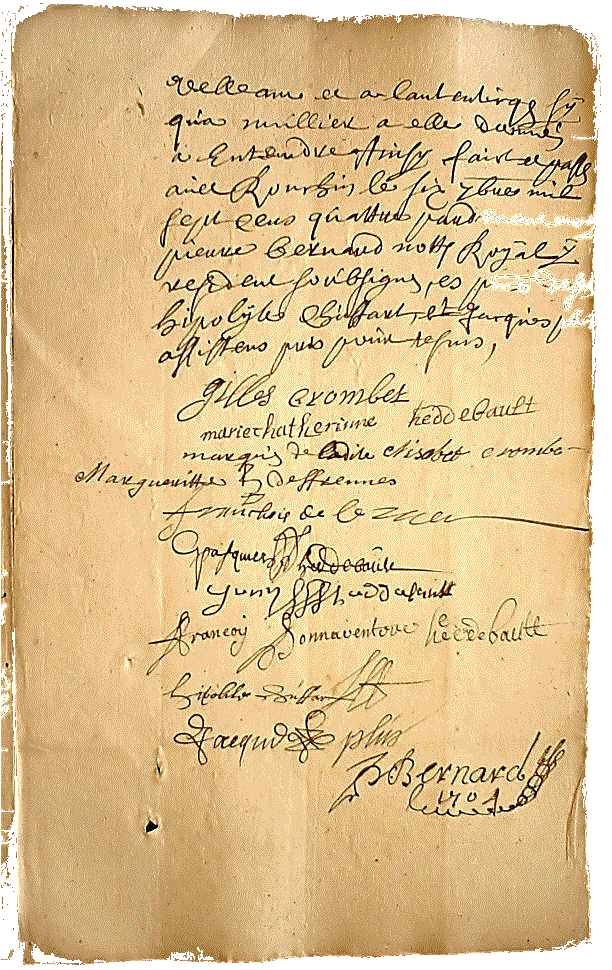 velleane et a
qu'a millier a elle donné
a Entendre Ainsy faict et passé
audt Rouchin le six 7bres mil
sept cens quattre pard
pierre Bernard nottre Royal
resident soubsigné, es p
hipolyte Chuffart, et Jacques p
assistens pris pour tesms,
gilles Crombet
marie chatherinne heddebault
marque de ladite elisabet crombe
Margueritte deffrennes
franchois de
pasquier heddebault
heddebault
francoy Bonnaventoure heedebautt
hipolite Chuffart
Jacque plus
P Bernard
1704